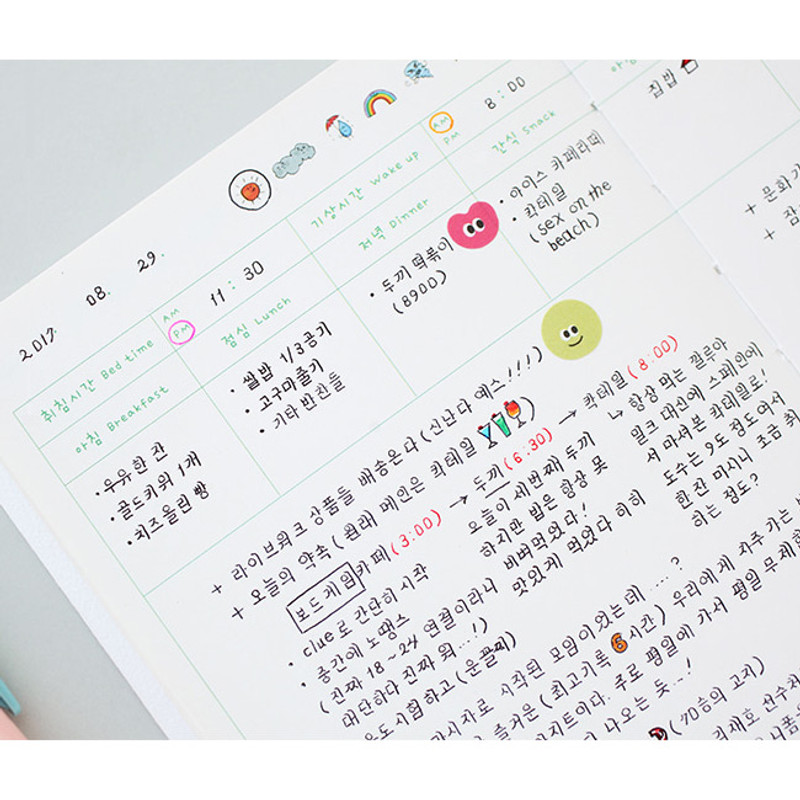 2017. 08. 29.
취침시간 Bed time AM PM 11 : 30
기상시간 Wake up AM PM 8 : 00
아침 Breakfast
• 우유 한 잔
• 골드키위 1개
• 치즈올린 빵
점심 Lunch
• 쌀밥 1/3공기
• 고구마줄기
• 기타 반찬들
저녁 Dinner
• 두끼 떡볶이
(8900)
간식 Snack
• 아이스 카페라떼
• 칵테일
(sex on the
beach)
집밥
+ 문화
+ 잠
+ 라이브워크 상품들 배송온다 (신난다 예스!!!)
+ 오늘의 약속 (원래 메인은 칵테일)
보드게임카페 (3:00) → 두끼 (6:30) → 칵테일 (8:00)
• clue로 간단히 시작
• 중간에 노땡스
(진짜 18~24 연결이라니
대단하다 진짜 와...!)
오늘이 세번째 두끼
하지만 밥은 항상 못
비벼먹었다!
맛있게 먹었다 히히
↳ 항상 먹는 깔루아
밀크 대신에 스페인에
서 마셔본 칵테일로!
도수는 9도 정도여서
한잔 마시니 조금 취
하는 정도?
도시험하고 (운끝찌)
시작된 모임이 있는데 ....?
즐거운 (최고기록 6시간) 우리에게 자주 가는
지트이다. 주로 평일에 가서 평일 무제한
나오는 듯..!
(70승의 고지)
김재호 선수